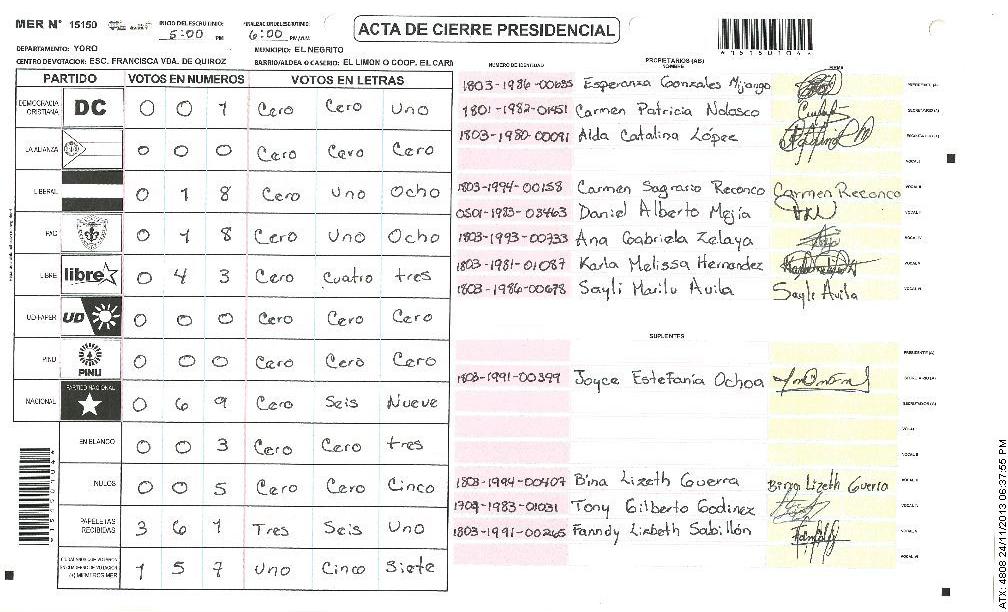 MER N° 15150 INICIO DEL ESCRUTINIO: 5:00 PM FINALIZACION DEL ESCRUTINIO: 6:00 PM
ACTA DE CIERRE PRESIDENCIAL
DEPARTAMENTO: YORO MUNICIPIO: EL NEGRITO
CENTRO DE VOTACION: ESC. FRANCISCA VDA. DE QUIROZ BARRIO/ALDEA O CASERIO: EL LIMON O COOP. EL CARI
PARTIDO VOTOS EN NUMEROS VOTOS EN LETRAS
DEMOCRACIA CRISTIANA DC 0 0 1 Cero Cero Uno
LA ALIANZA 0 0 0 Cero Cero Cero
LIBERAL 0 1 8 Cero Uno Ocho
PAC 0 1 8 Cero Uno Ocho
LIBRE libre 0 4 3 Cero Cuatro tres
UD FAPER UD 0 0 0 Cero Cero Cero
PINU PINU 0 0 0 Cero Cero Cero
NACIONAL PARTIDO NACIONAL 0 6 9 Cero Seis Nueve
EN BLANCO 0 0 3 Cero Cero tres
NULOS 0 0 5 Cero Cero Cinco
PAPELETAS RECIBIDAS 3 6 1 Tres Seis Uno
(+) MIEMBROS MER 1 5 7 Uno Cinco Siete
PROPIETARIOS (AS)
NUMERO DE IDENTIDAD NOMBRE FIRMA
1803-1986-00685 Esperanza Gonzales Mijango PRESIDENTE (A)
1801-1982-01451 Carmen Patricia Nolasco SECRETARIO (A)
1803-1980-00091 Alda Catalina López ESCRUTADOR (A)
VOCAL I
1803-1994-00158 Carmen Sagrario Reconco Carmen Reconco VOCAL II
0501-1983-03463 Daniel Alberto Mejía
1803-1993-00733 Ana Gabriela Zelaya VOCAL IV
1803-1981-01087 Karla Melissa Hernandez VOCAL V
1803-1986-00678 Sayli Marilu Avila Sayli Avila VOCAL VI
SUPLENTES
PRESIDENTE (A)
1803-1991-00399 Joyce Estefanía Ochoa SECRETARIO (A)
ESCRUTADOR (A)
VOCAL I
VOCAL II
1803-1994-00407 Bina Lizeth Guerra Bina Lizeth Guerra
1709-1983-01031 Tony Gilberto Godinez
1803-1991-00265 Fanndy Lizbeth Sabillón VOCAL V
VOCAL VI
ATX: 4808 24/11/2013 06:37:55 PM